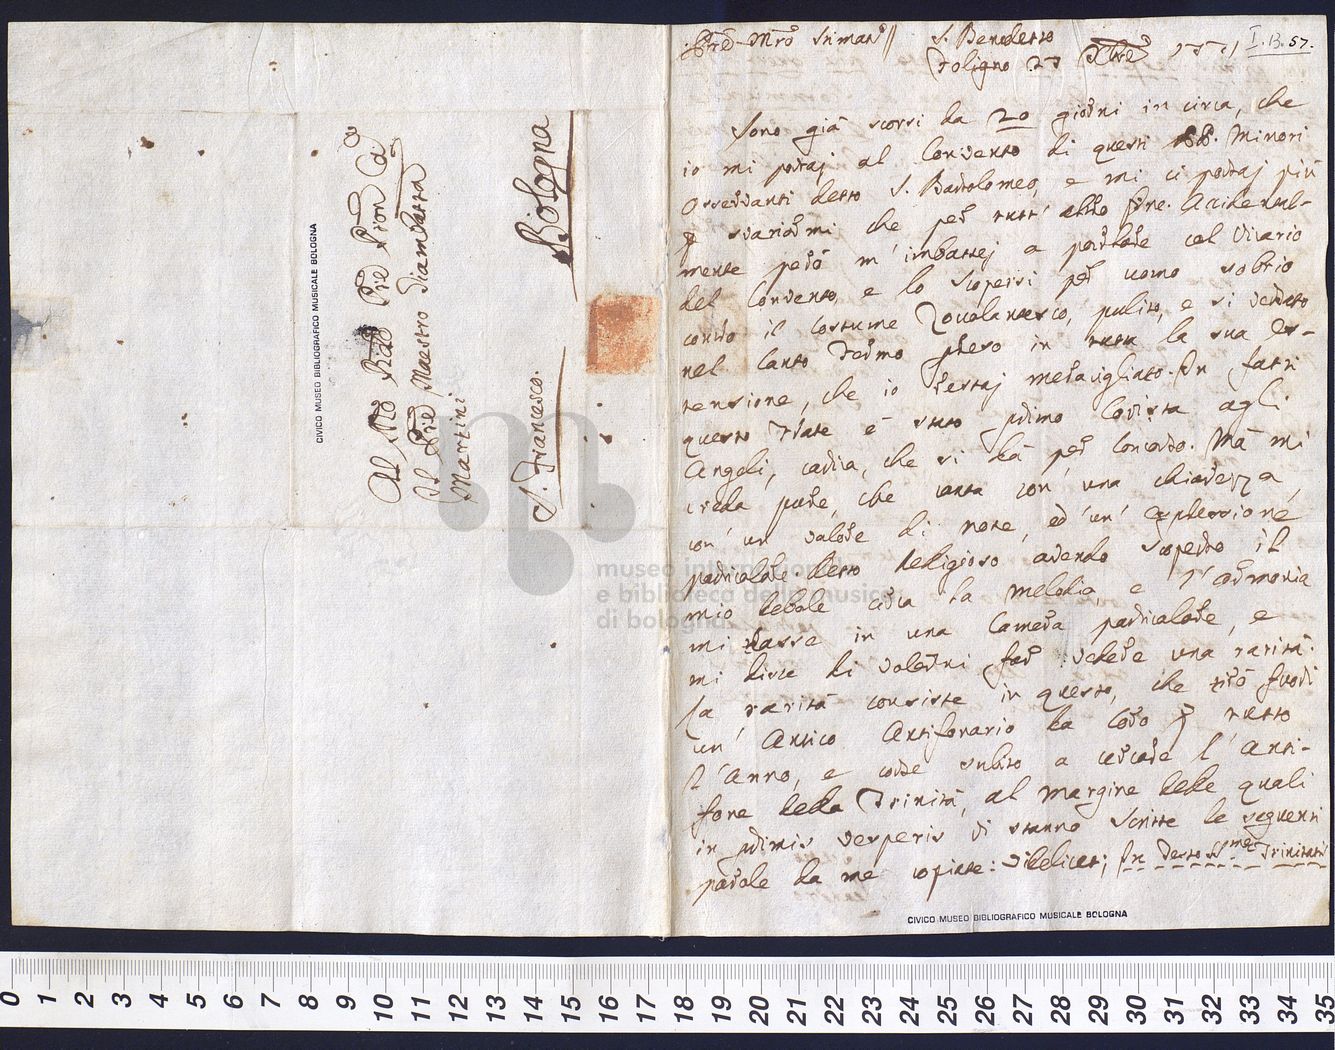 Al Mto Rdo Pre Pron Co
Il Pre Maestro Giambatta
Martini
Bologna
S. Francesco.
CIVICO MUSEO BIBLIOGRAFICO MUSICALE BOLOGNA
Pre Mro Stimatmo
S. Benedetto
Foligno 27
I.B.57.
Sono già scorsi da 20 giorni in circa, che
io mi portaj al Convento di questi PP. Minori
Osservanti detto S. Bartolomeo, e mi ci portaj più
p svariarmi che per tutt' altro fine. Accidental-
mente però m'imbattej a parlare col Vicario
del Convento, e lo scopersi per uomo sobrio
condo il costume Zoccolantesco, pulito, e si versato
nel Canto Fermo preso in tutta la sua es-
tensione, che io restaj meravigliato. In fatti
questo Frate è stato primo Corista agli
Angeli, carica, che si dà per Concorso. Mà mi
creda pure, che canta con una chiarezza,
con' un valore di note, ed' un' espressione
particolare. detto Religioso avendo scoperto il
mio debole circa la melodia, e l'armonia
mi trasse in una Camera particolare, e
mi disse di volermi far vedere una rarità.
la rarità consiste in questo, che tirò fuori
un' Antico Antifonario da Coro p tutto
l'Anno, e corse subito a cercare l'Anti-
fone della Trinità, al margine delle quali
in primis vesperis vi stanno scritte le seguenti
parole da me copiate: videlicet; In Festo Ssmæ Trinitatis
CIVICO MUSEO BIBLIOGRAFICO MUSICALE BOLOGNA
museo internazionale
e biblioteca della musica
di bologna
0 1 2 3 4 5 6 7 8 9 10 11 12 13 14 15 16 17 18 19 20 21 22 23 24 25 26 27 28 29 30 31 32 33 34 35